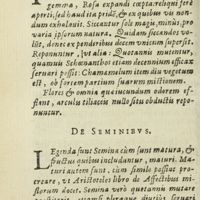 gemma, Rosa expandi cœpta: reliqui ferè
aperti: sed haud ita pridē, & ex quibus vis non-
dum exhalauit. Siccantur sole magis, minus, pro
varia ipsorum natura. Quidam siccandos vo-
lūt, donec ex ponderibus decem vnicum supersit.
Reponuntur, vt alia: Quotannis mutentur,
quamuis Schœnanthos etiam decennium efficax
seruari possit: Chamæmelum item diu vegetum
est, ob partium suarum mistionem.
Flores & omnia quæ iucundum odorem ef-
flant, arculis tiliaceis multo situ obductis repo-
nuntur.
DE SEMINIBVS.
LEgenda sunt Semina cùm sunt matura, &
fructus quibus includuntur, maturi. Ma-
tura autem sunt, cùm simile possunt pro-
creare, vt Aristoteles libro de Affectibus mi-
storum docet. Semina verò quotannis mutare